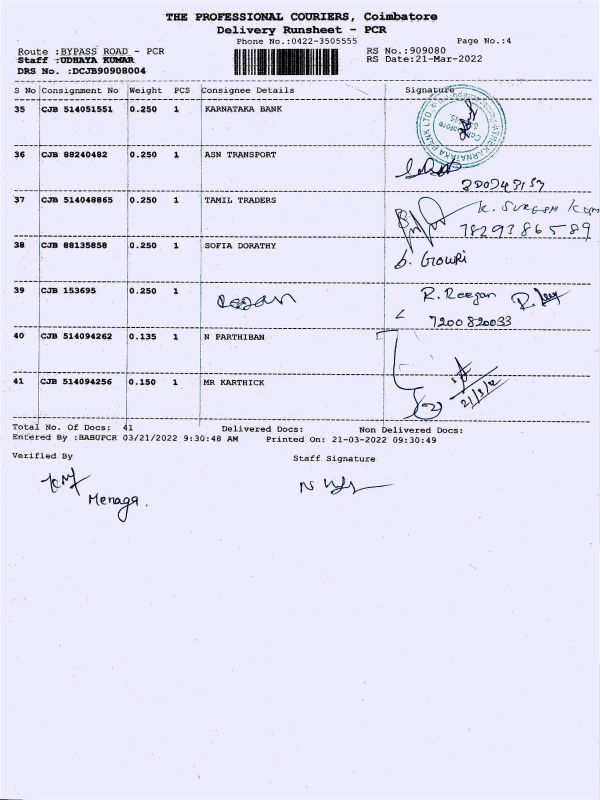 THE PROFESSIONAL COURIERS, Coimbatore
Delivery Runsheet - PCR
Phone No.:0422-3505555 Page No.:4
Route :BYPASS ROAD - PCR RS No.:909080
Staff :UDHAYA KUMAR RS Date:21-Mar-2022
DRS No. :DCJB90908004
S No Consignment No Weight PCS Consignee Details Signature
35 CJB 514051551 0.250 1 KARNATAKA BANK
36 CJB 88240482 0.250 1 ASN TRANSPORT
37 CJB 514048865 0.250 1 TAMIL TRADERS K. SURESH
7829386589
38 CJB 88135858 0.250 1 SOFIA DORATHY G. Gowri
39 CJB 153695 0.250 1 Reegan R. Reegan
7200820033
40 CJB 514094262 0.135 1 N PARTHIBAN
41 CJB 514094256 0.150 1 MR KARTHICK (2) 21/3/22
Total No. Of Docs: 41 Delivered Docs: Non Delivered Docs:
Entered By :BABUPCR 03/21/2022 9:30:48 AM Printed On: 21-03-2022 09:30:49
Verified By Staff Signature
Menaga.